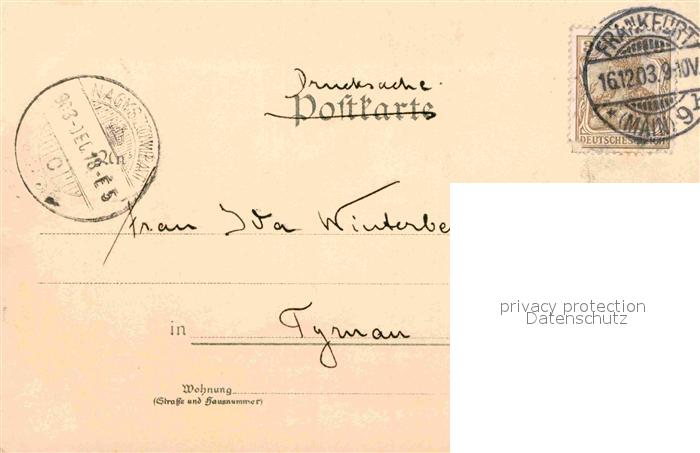 Drucksache
Postkarte
FRANKFURT
16.12.03.9-10V.
* (MAIN) 9
DEUTSCHES REICH
NAGYSZOMBAT
903-DEC.18-E5
An
Frau Ida Winterbe
in Tyrnau
Wohnung
(Straße und Hausnummer)
privacy protection
Datenschutz